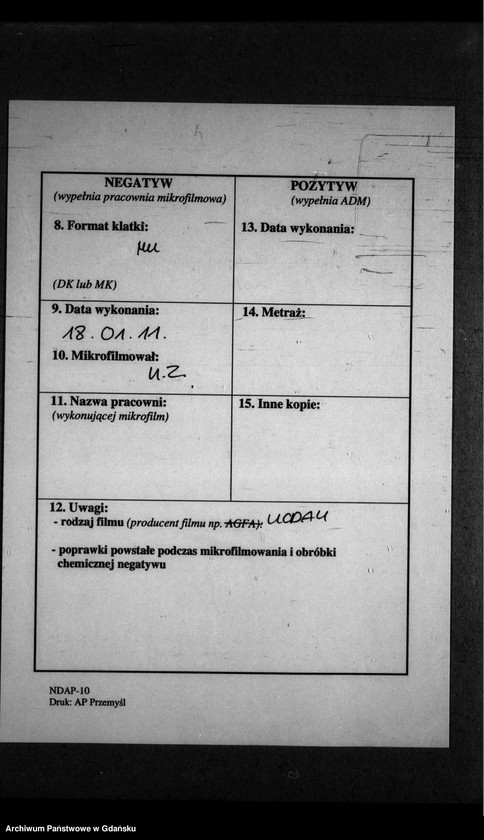 NEGATYW
(wypełnia pracownia mikrofilmowa)
8. Format klatki:
(DK lub MK)
9. Data wykonania:
18.01.11.
10. Mikrofilmował:
U.Z
11. Nazwa pracowni:
(wykonującej mikrofilm)
POZYTYW
(wypełnia ADM)
13. Data wykonania:
14. Metraż:
15. Inne kopie:
12. Uwagi:
- rodzaj filmu (producent filmu np. AGFA):
- poprawki powstałe podczas mikrofilmowania i obróbki
chemicznej negatywu
NDAP-10
Druk: AP Przemyśl
Archiwum Państwowe w Gdańsku